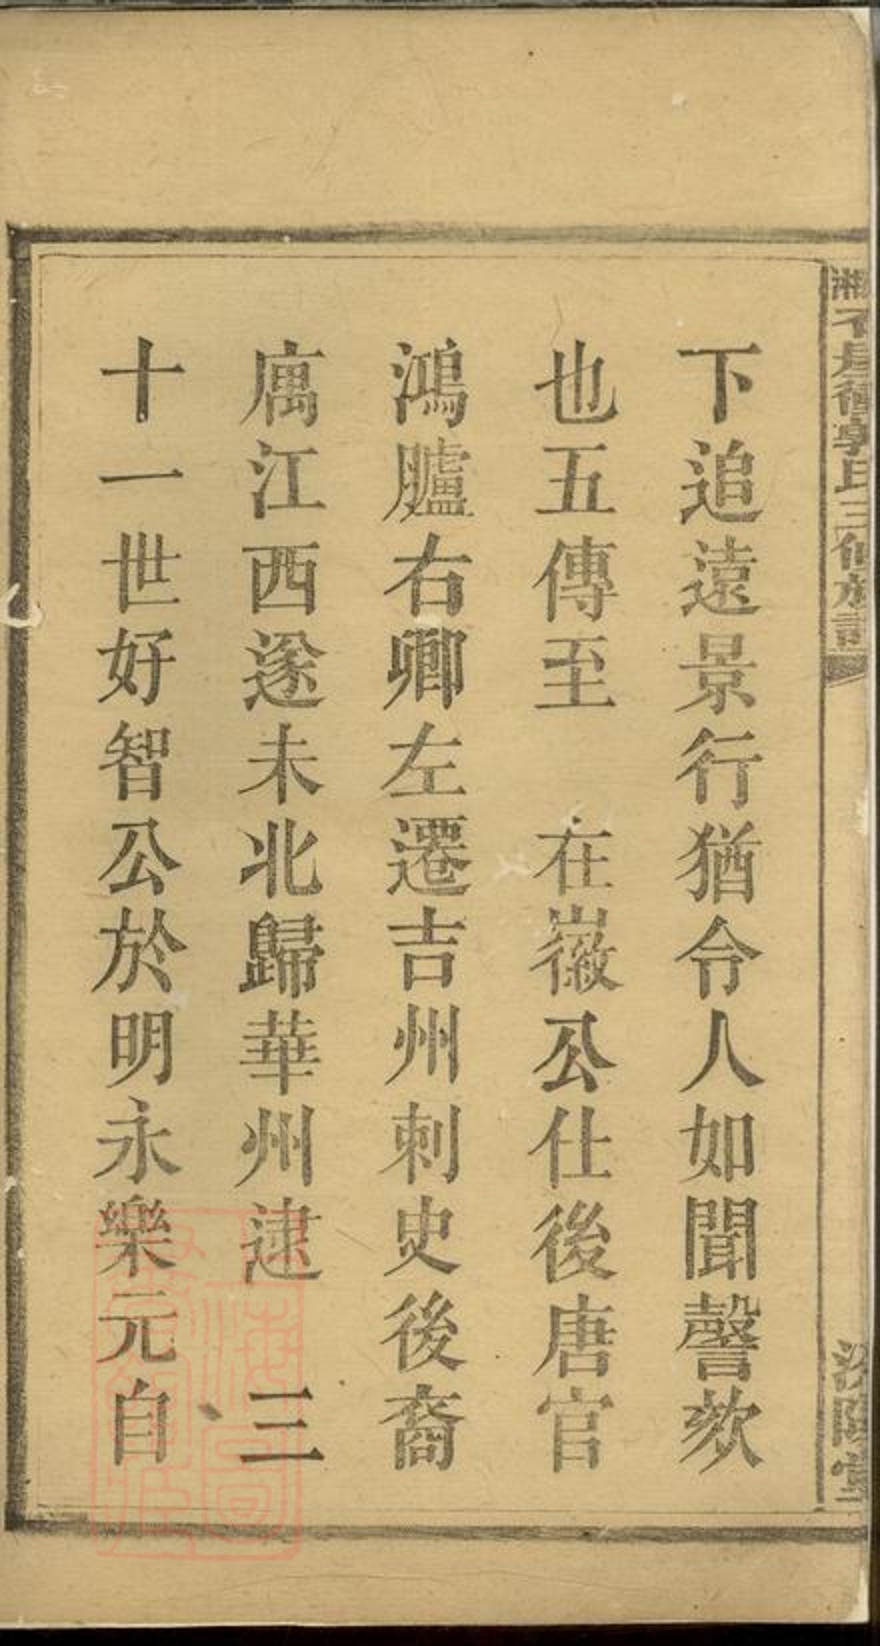 郭氏三修族譜
汾陽堂
下追遠景行猶令人如聞謦欬
也五傳至　在徽公仕後唐官
鴻臚右卿左遷吉州刺史後裔
庽江西遂未北歸華州逮　三
十一世好智公於明永樂元自